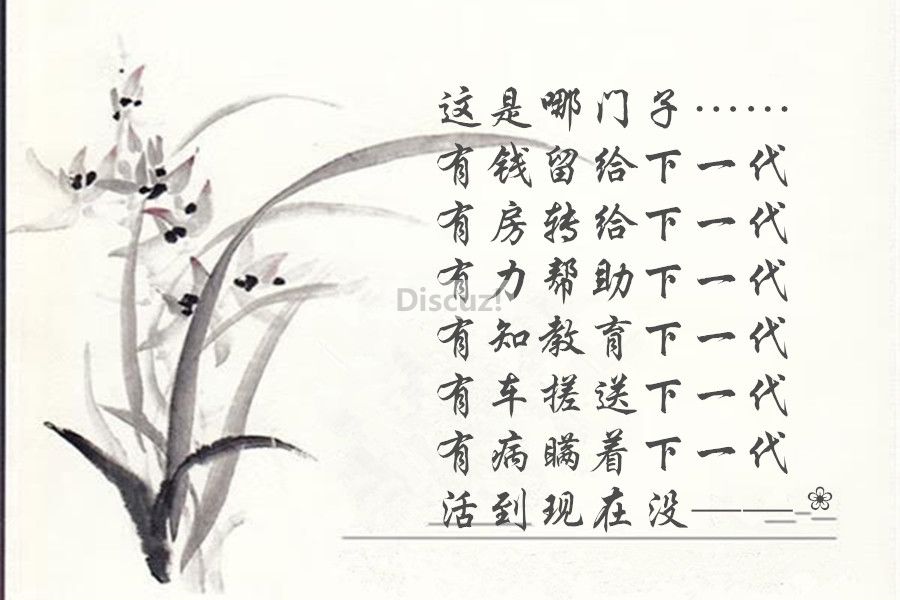 这是哪门子……
有钱留给下一代
有房转给下一代
有力帮助下一代
Discuz!
有知教育下一代
有车搓送下一代
有病瞒着下一代
活到现在没——❀